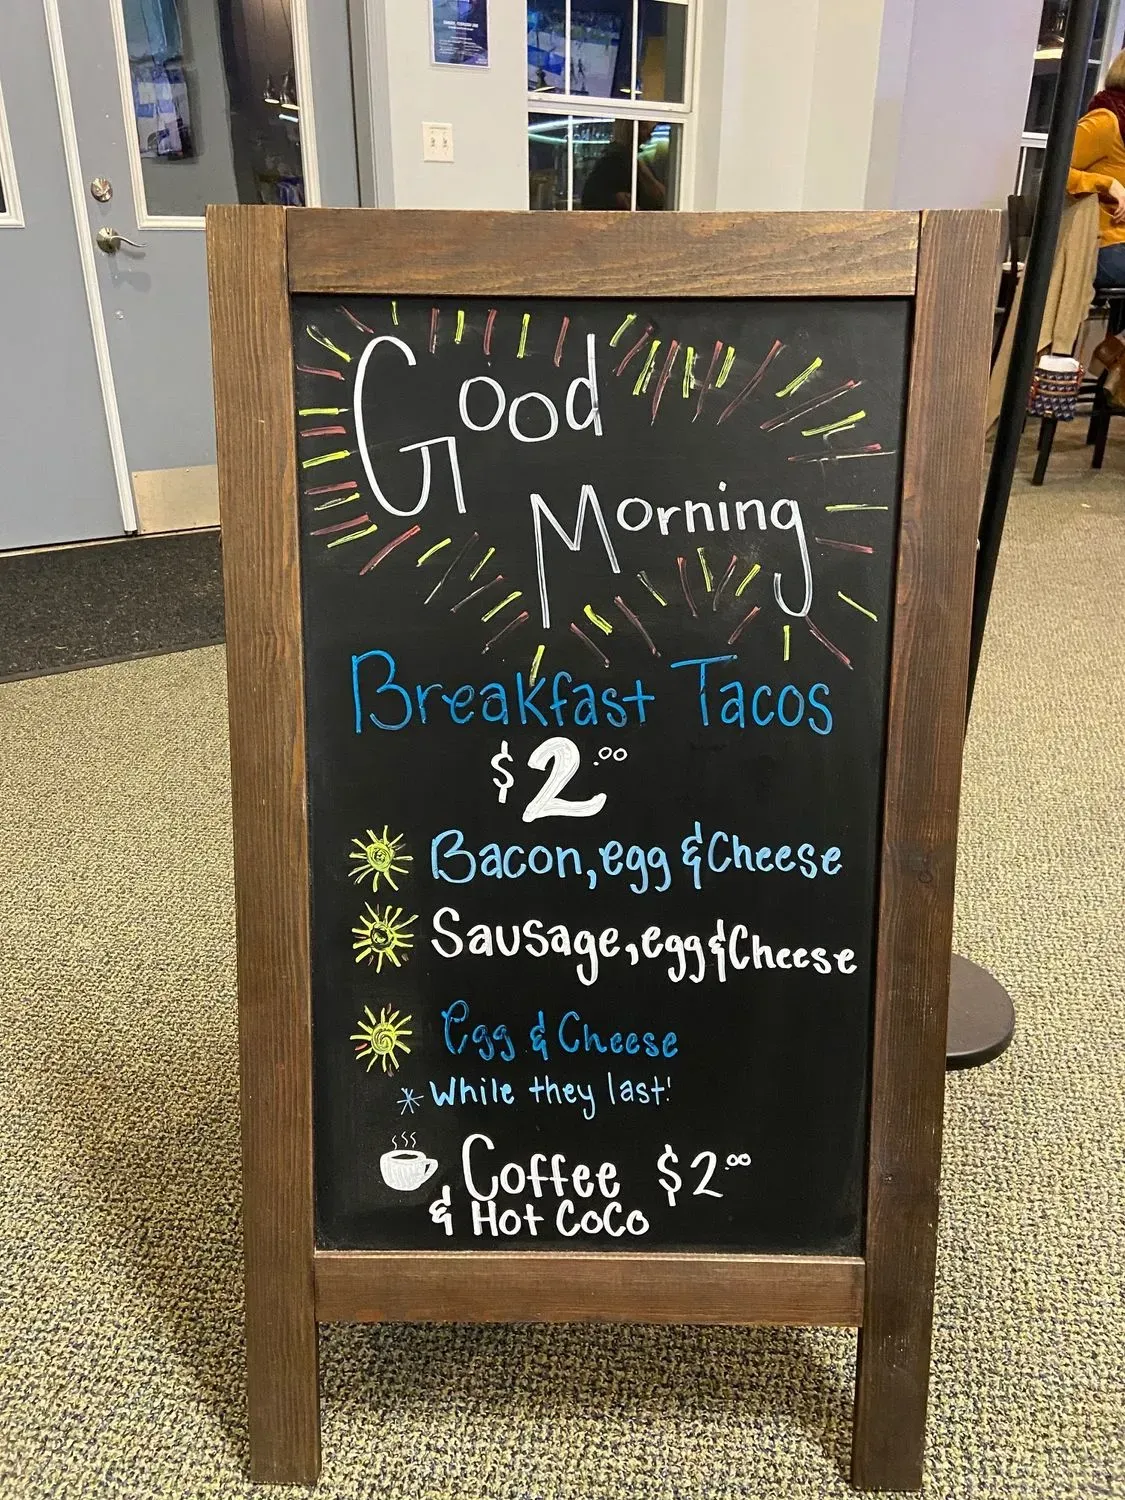 Good
Morning
Breakfast Tacos
$2.00
Bacon, egg & Cheese
Sausage, egg & Cheese
Egg & Cheese
*While they last!
Coffee $2.00
& Hot CoCo